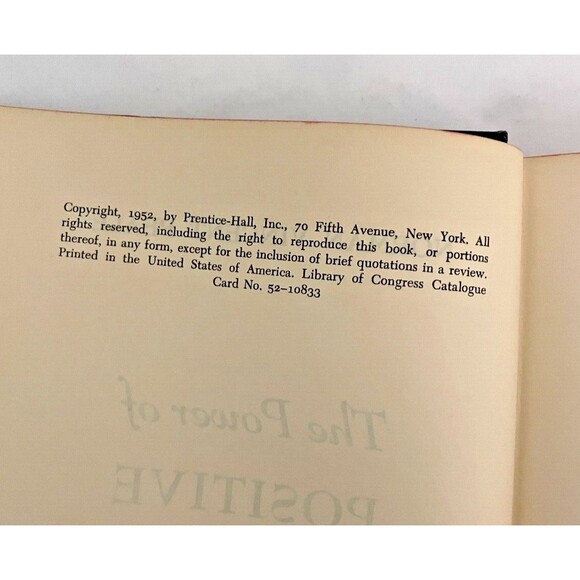 Copyright, 1952, by Prentice-Hall, Inc., 70 Fifth Avenue, New York. All
rights reserved, including the right to reproduce this book, or portions
thereof, in any form, except for the inclusion of brief quotations in a review.
Printed in the United States of America. Library of Congress Catalogue
Card No. 52-10833
The Power of
POSITIVE